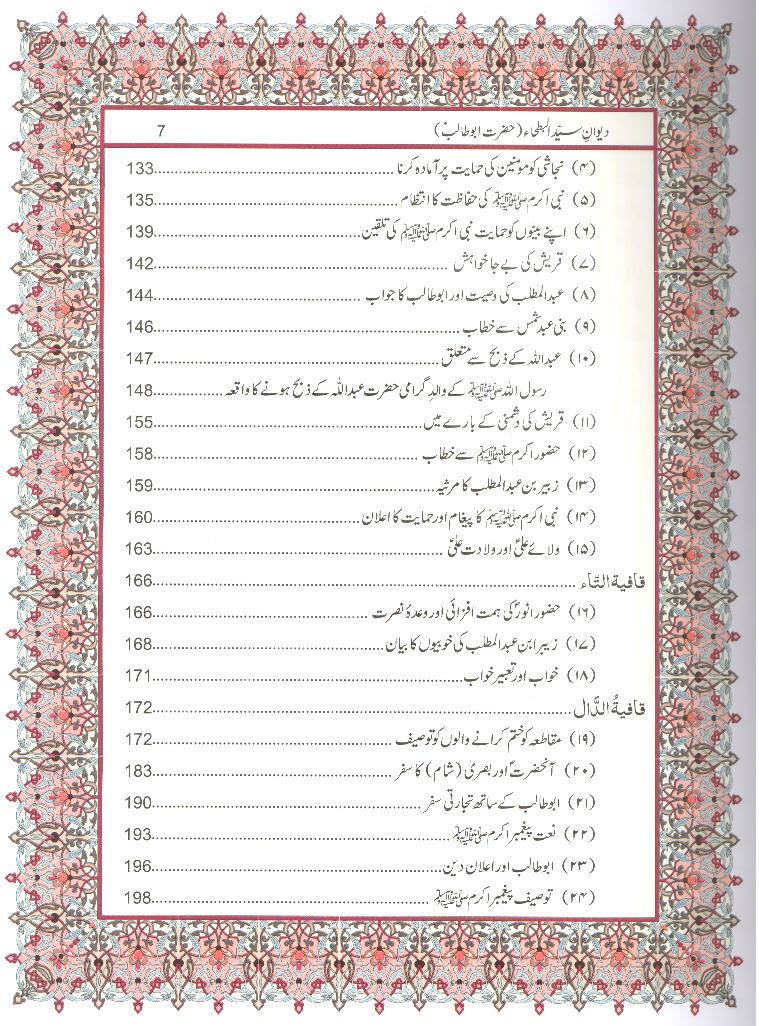 دیوانِ سیّد البطحاء (حضرت ابوطالبؑ) 7
(۴) نجاشی کو مومنین کی حمایت پر آمادہ کرنا ............ 133
(۵) نبی اکرم ﷺ کی حفاظت کا انتظام ............ 135
(۶) اپنے بیٹوں کو حمایت نبی اکرم ﷺ کی تلقین ............ 139
(۷) قریش کی بے جا خواہش ............ 142
(۸) عبدالمطلب کی وصیت اور ابوطالب کا جواب ............ 144
(۹) بنی عبد شمس سے خطاب ............ 146
(۱۰) عبداللہ کے ذبح سے متعلق ............ 147
رسول اللہ ﷺ کے والدِ گرامی حضرت عبداللہ کے ذبح ہونے کا واقعہ ............ 148
(۱۱) قریش کی دشمنی کے بارے میں ............ 155
(۱۲) حضور اکرم ﷺ سے خطاب ............ 158
(۱۳) زبیر بن عبدالمطلب کا مرثیہ ............ 159
(۱۴) نبی اکرم ﷺ کا پیغام اور حمایت کا اعلان ............ 160
(۱۵) ولائے علیؑ اور ولادت علیؑ ............ 163
قافیة التّاء ............ 166
(۱۶) حضور انورؐ کی ہمت افزائی اور وعدۂ نصرت ............ 166
(۱۷) زبیر ابن عبدالمطلب کی خوبیوں کا بیان ............ 168
(۱۸) خواب اور تعبیر خواب ............ 171
قافیةُ الدَّال ............ 172
(۱۹) مقاطعہ کو ختم کرانے والوں کو توصیف ............ 172
(۲۰) آنحضرتؐ اور بصریٰ (شام) کا سفر ............ 183
(۲۱) ابوطالب کے ساتھ تجارتی سفر ............ 190
(۲۲) نعت پیغمبر اکرم ﷺ ............ 193
(۲۳) ابوطالب اور اعلان دین ............ 196
(۲۴) توصیف پیغمبر اکرم ﷺ ............ 198